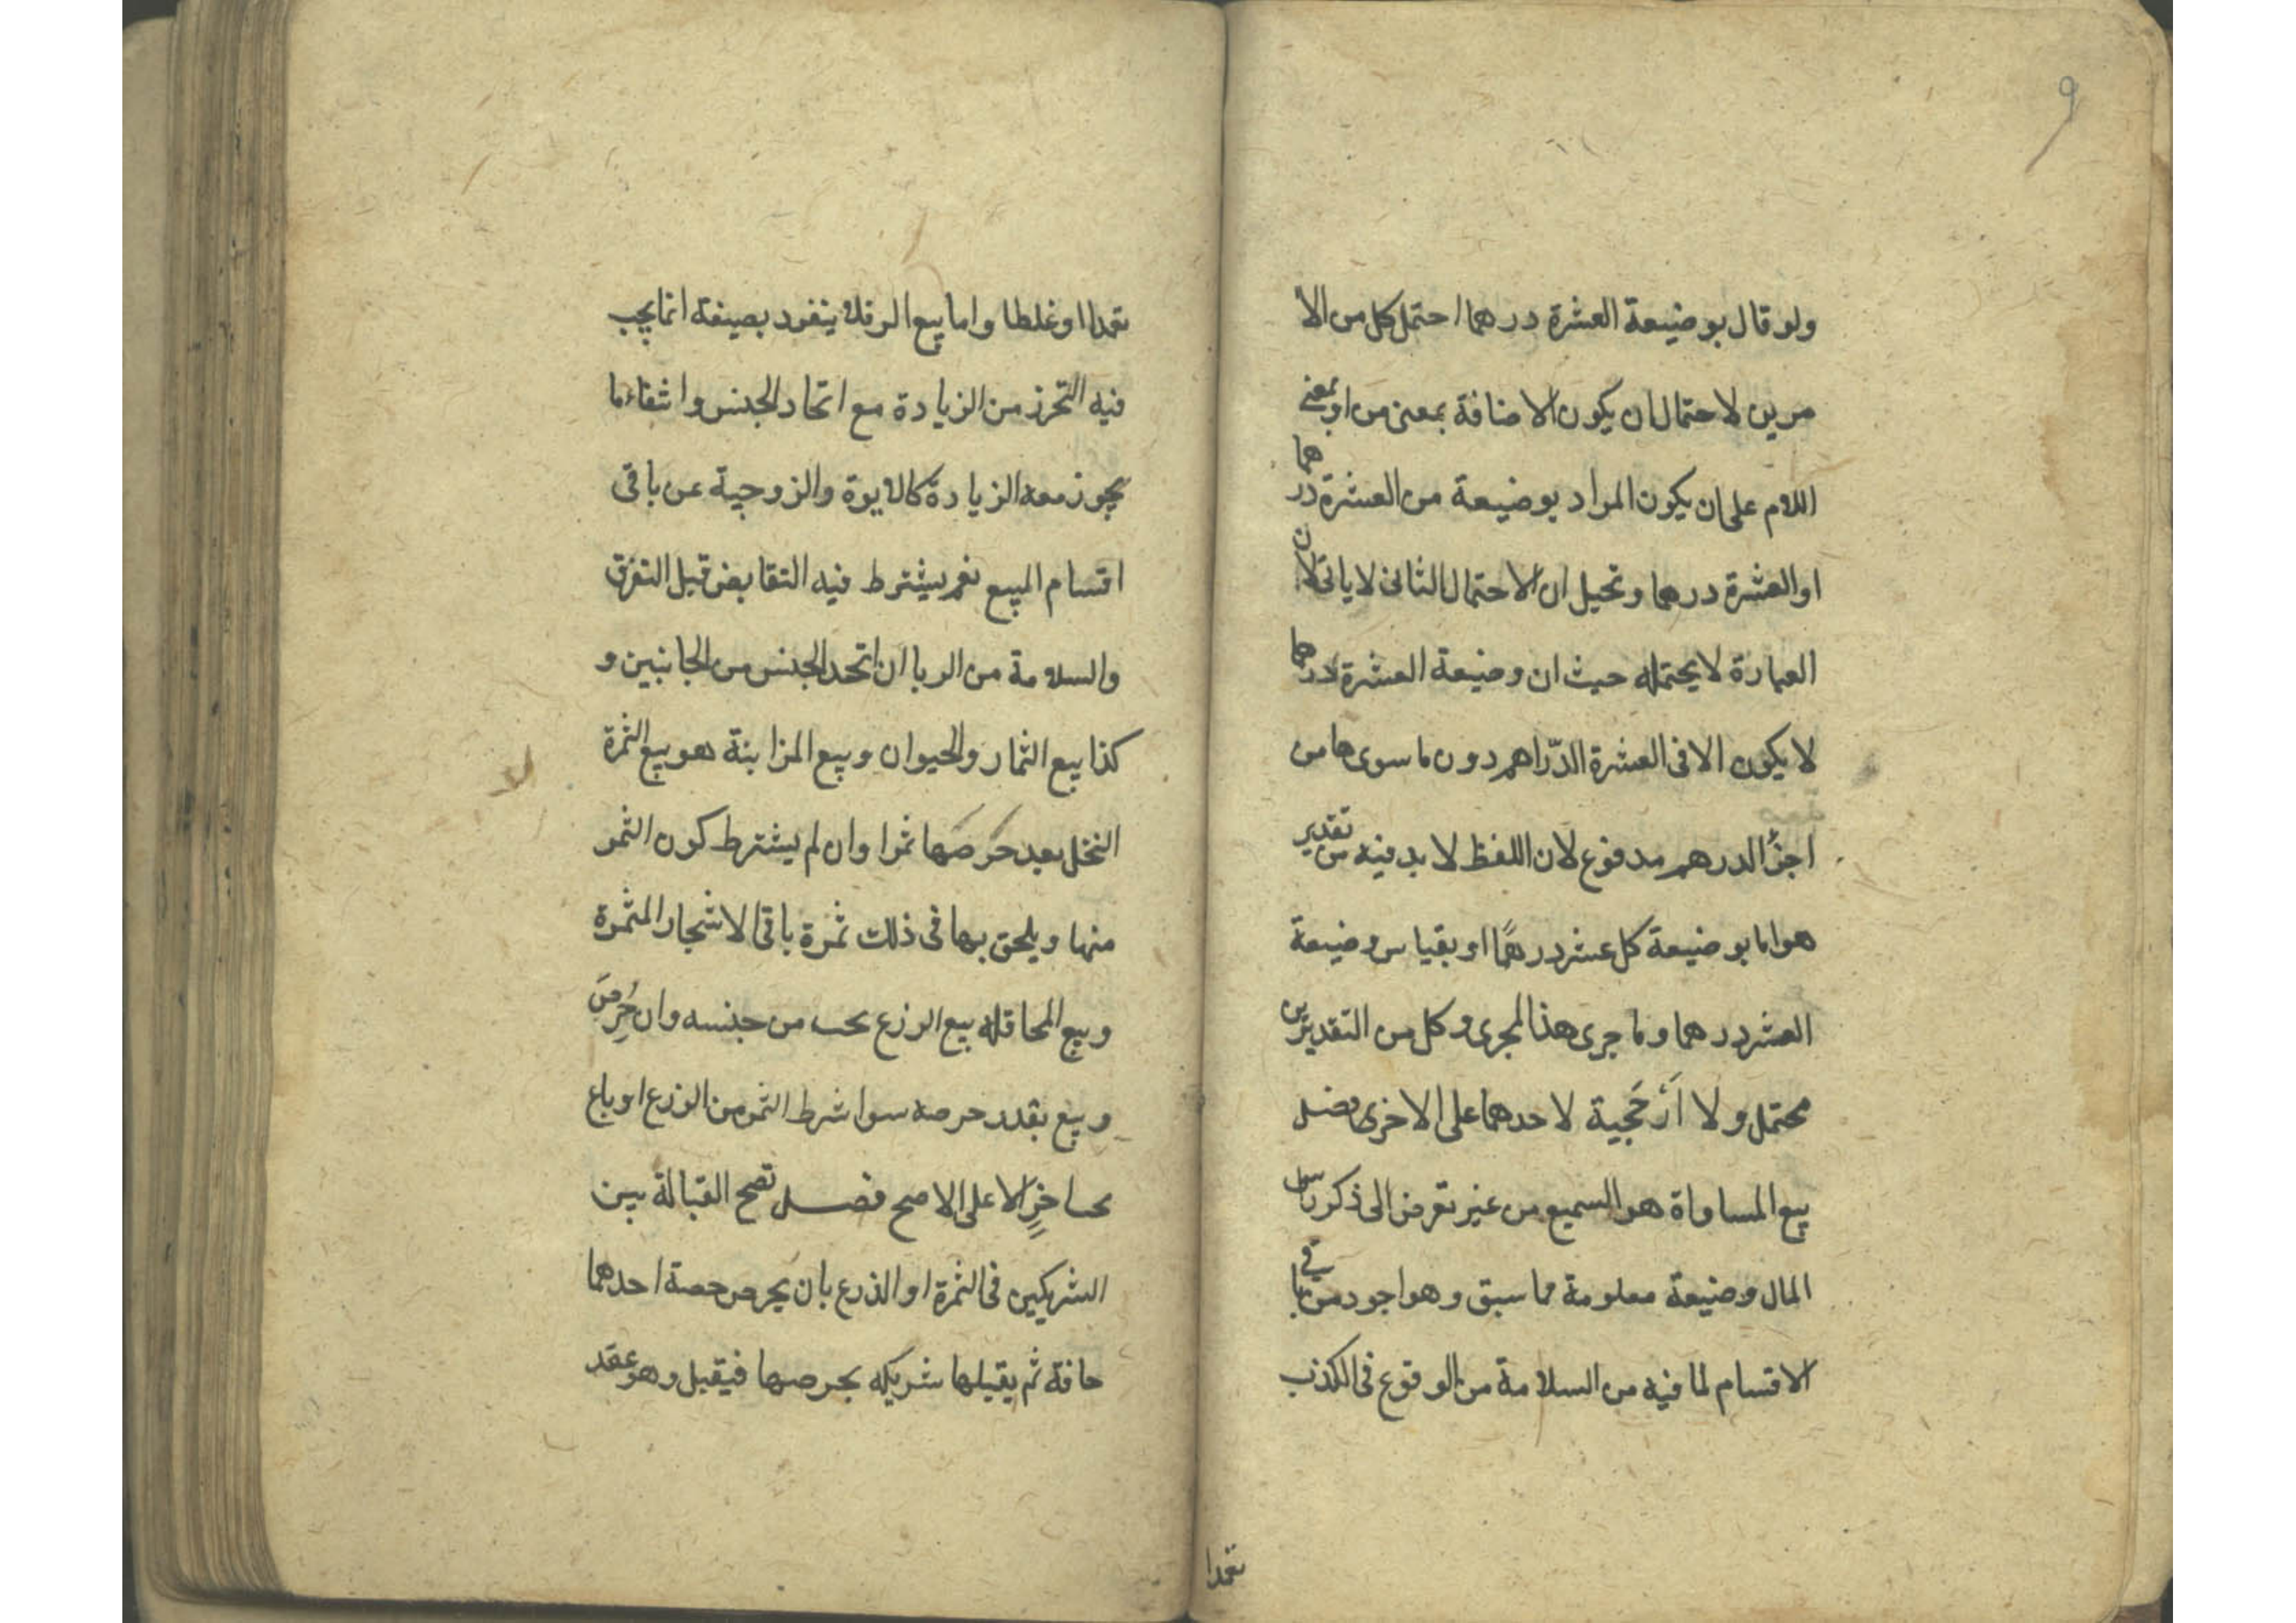 ٩
ولو قال بوضيعة العشرة درهما احتمل كل من الا
مرين لاحتمال ان يكون الاضافة بمعنى من او بمعنى
اللام على ان يكون المراد بوضيعة من العشرة درهما
او العشرة درهما وتخيل ان الاحتمال الثاني لا ياتى لان
العبارة لا يحتمله حيث ان وضيعة العشرة درهما
لا يكون الا فى العشرة الدّراهم دون ما سوى ها من
اجزّا الدرهم مدفوع لان اللفظ لا بد فيه من تقدير
هو اما بوضيعة كل عشر درهمًا او بقياس وضيعة
العشر درهما وما جرى هذا المجرى وكل من التقديرين
محتمل ولا اَرْجَحية لاحدهما على الاخرى فصل
بيع المساواة هو السميع من غير تعرض الى ذكر راس
المال وضيعة معلومة مما سبق وهو اجود من باقي
الاقسام لما فيه من السلامة من الوقوع فى الكذب
تعمدا
تعمدا او غلطا واما بيع الرقلا ينفرد بصيغة انما يجب
فيه التحرز من الزيادة مع اتحاد الجنس وانتفاء ما
يجوز معه الزيادة كالابوة والزوجية عن باقى
اقسام المبيع نعم يشترط فيه التقابض قبل التفرق
والسلامة من الربا ان اتحد الجنس من الجانبين و
كذا بيع الثمار والحيوان وبيع المزابنة هو بيع الثمرة
النخل بعد خَرصَها ثمرا وان لم يشترط كون الثمر
منها ويلحق بها فى ذلك ثمرة باقى الاشجار المثمرة
وبيع المحاقله بيع الزرع بحب من جنسه وان خُرِصَ
وبيع بقدر خرصه سوا شرط الثمر من الزرع او باع
بحب اخرٍ الا على الاصح فصل تصح القبالة بين
الشريكين فى الثمرة او الذرع بان يخرص حصة احدهما
خافة ثم يقبلها شريكه بخرصها فيقبل وهو عقد